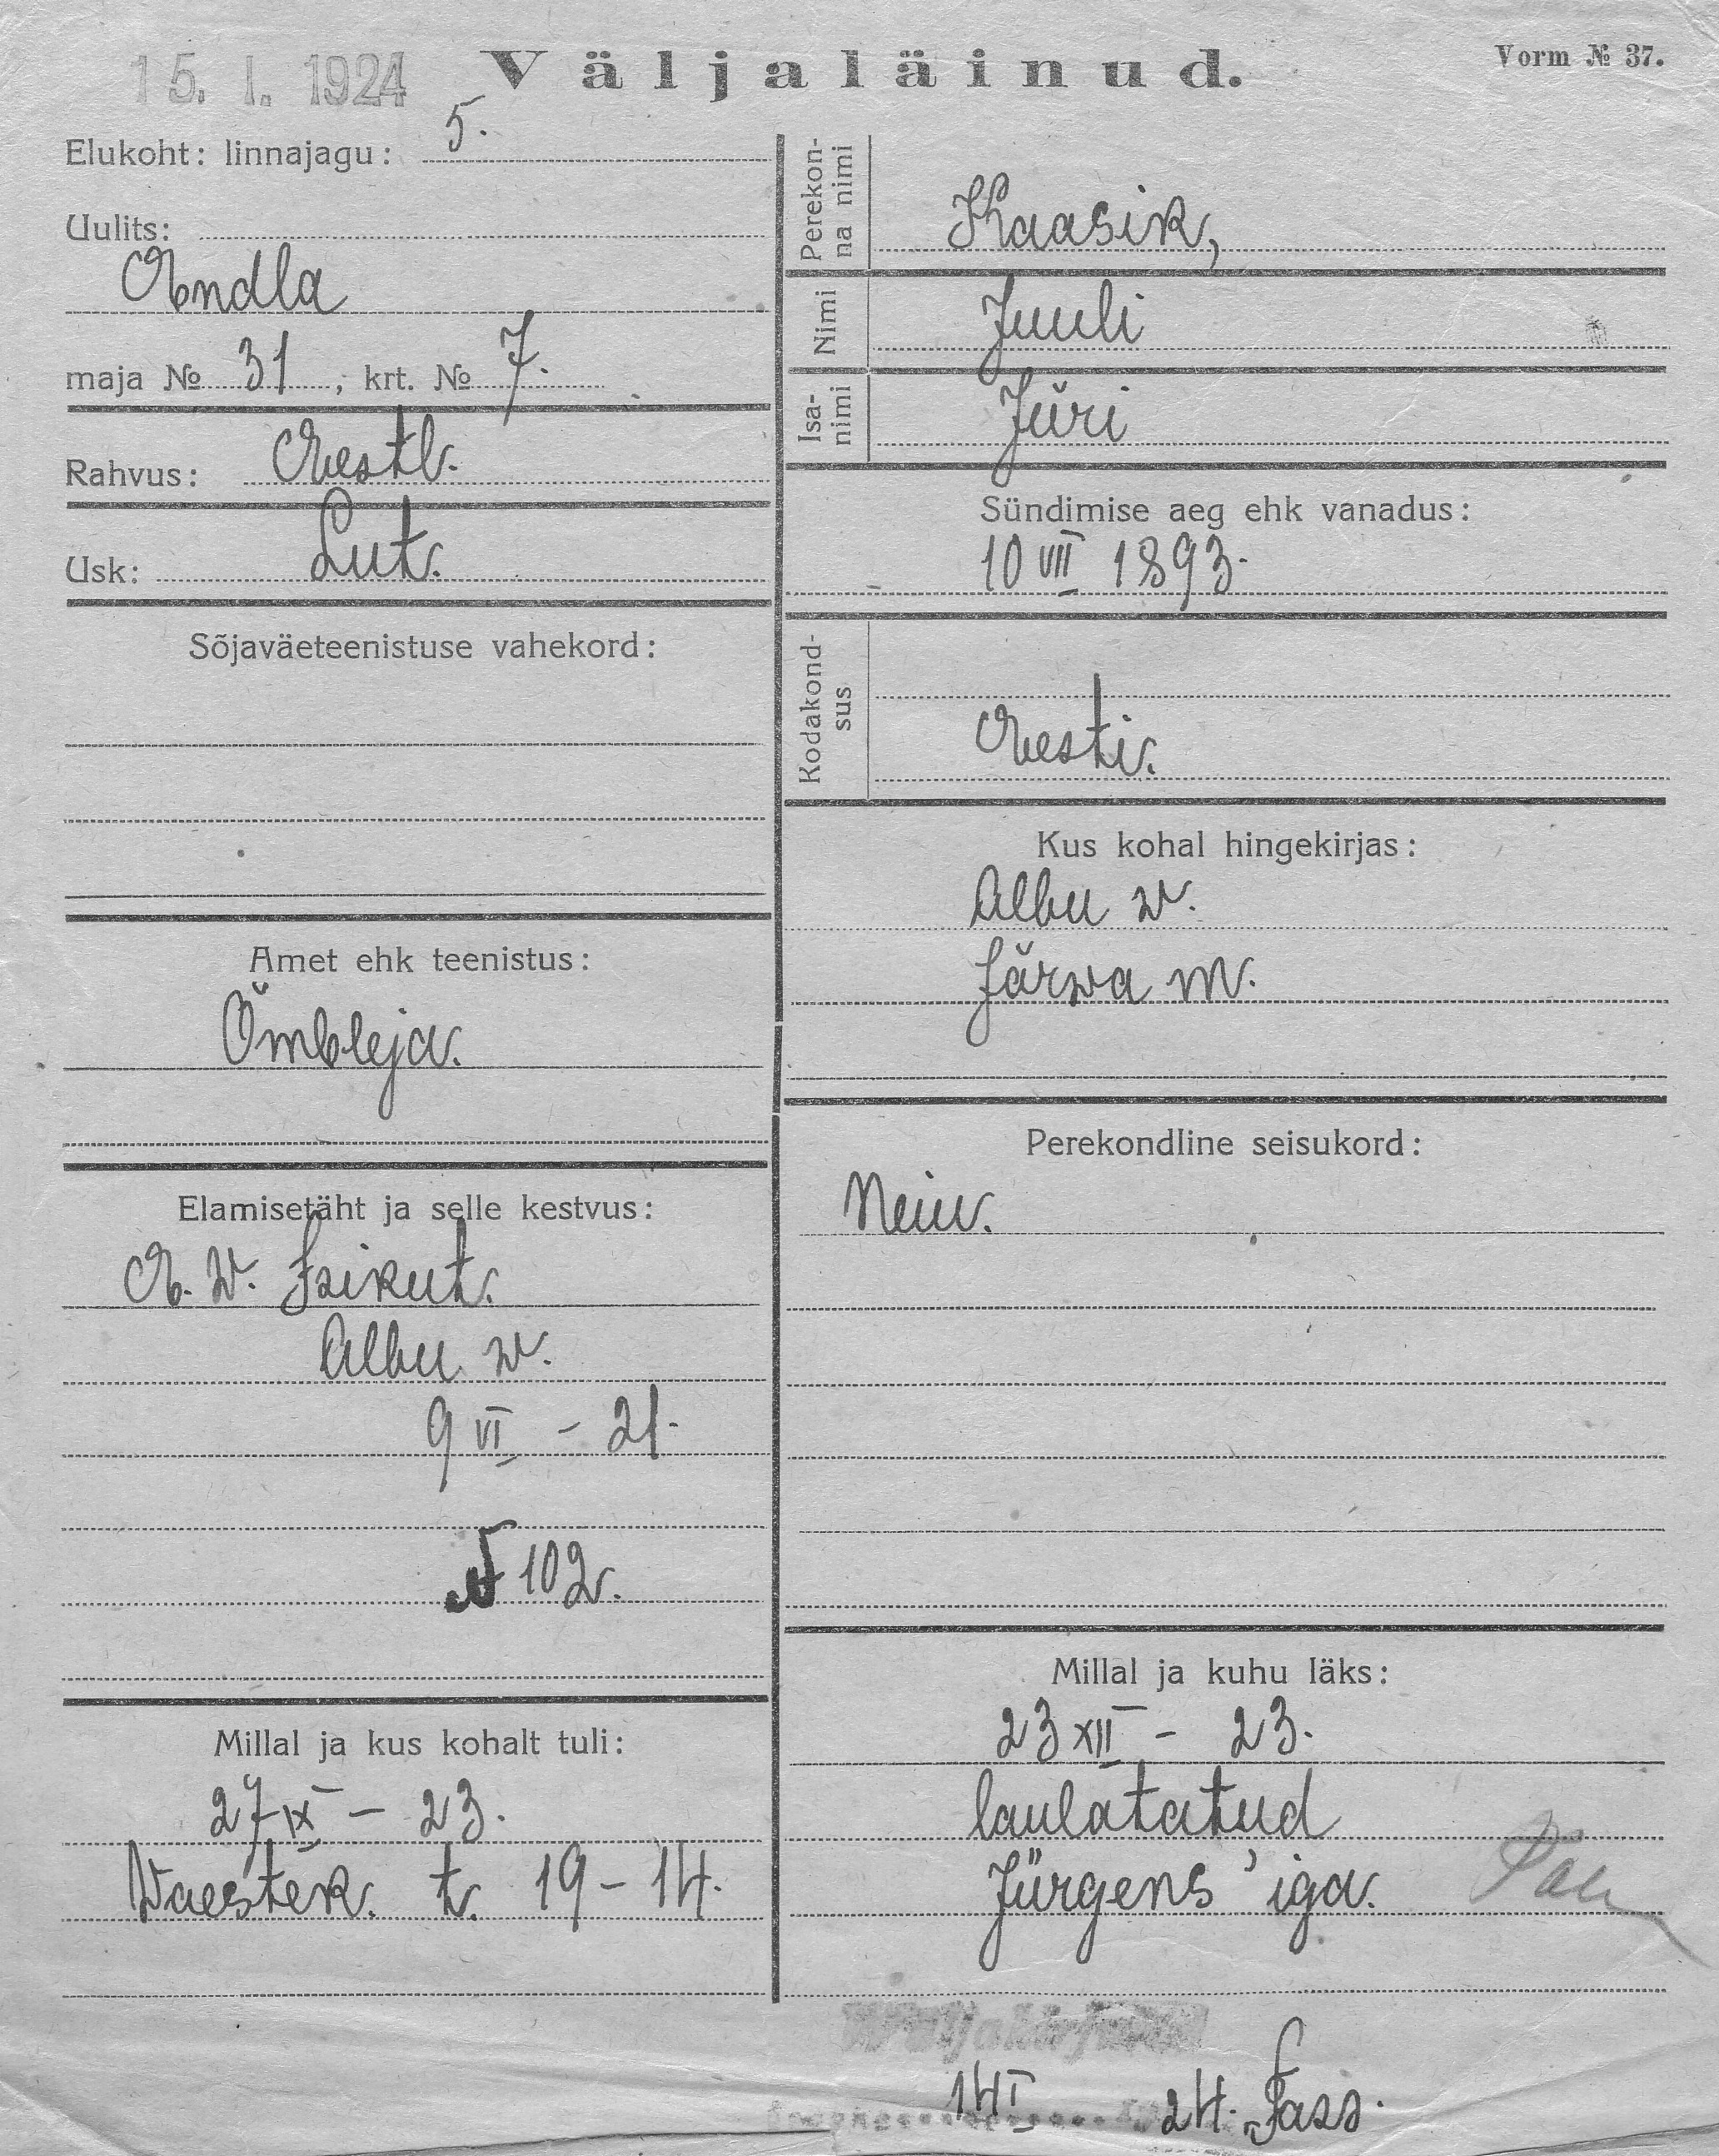 15. I. 1924
Väljaläinud.
Vorm № 37.
Elukoht: linnajagu: 5.
Uulits:
Endla
maja № 31, krt. № 7.
Rahvus: Eestl.
Usk: Lut.
Sõjaväeteenistuse vahekord:
Amet ehk teenistus:
Õmbleja.
Elamisetäht ja selle kestvus:
E. W. Isikut.
Albu w.
9 VI - 21.
№ 102.
Millal ja kus kohalt tuli:
27 IX - 23.
Waestek. t. 19-14.
Perekonna nimi
Kaasik,
Nimi
Juuli
Isanimi
Jüri
Sündimise aeg ehk vanadus:
10 VII 1893.
Kodakondsus
Eesti.
Kus kohal hingekirjas:
Albu w.
Järwa m.
Perekondline seisukord:
Neiu.
Millal ja kuhu läks:
23 XII - 23.
laulatatud
Jürgens'iga.
14 I 24.